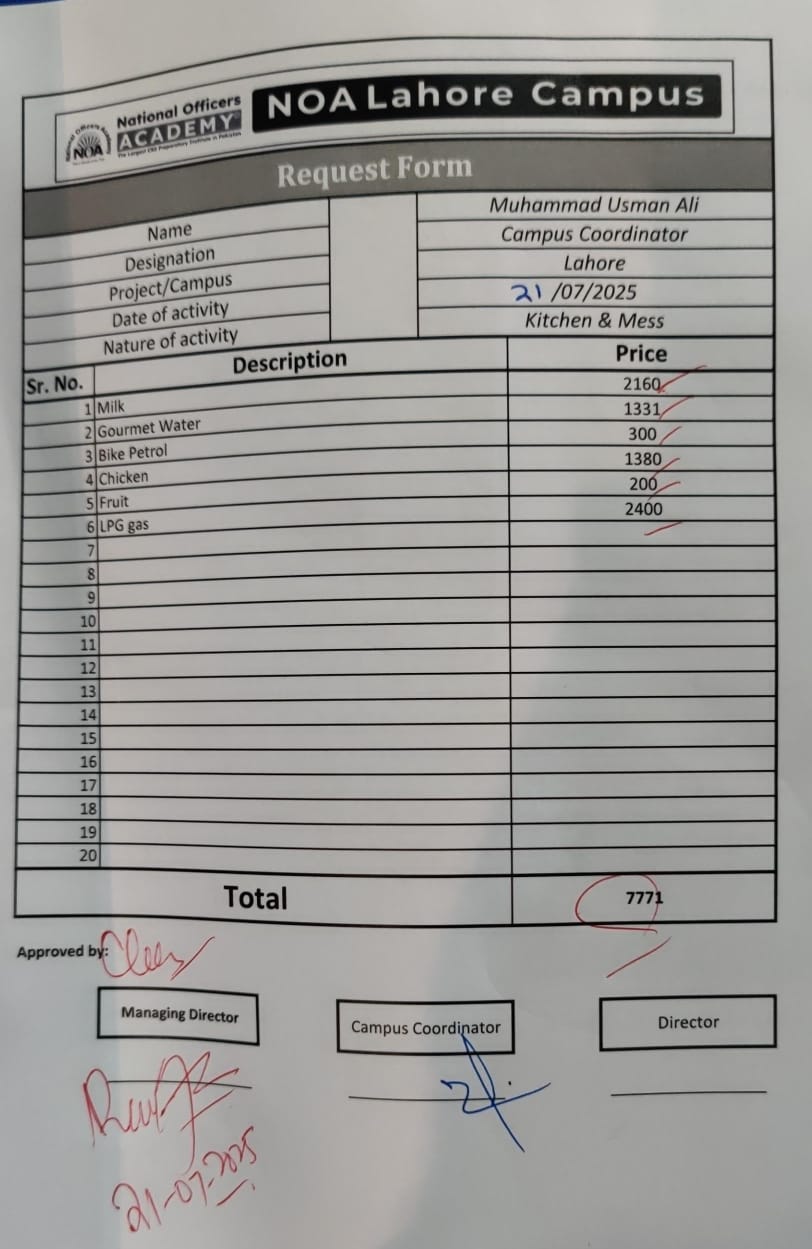 National Officers
ACADEMY
NOA
The Largest CSS Preparatory Institute in Pakistan
NOA Lahore Campus
Request Form
Name Muhammad Usman Ali
Designation Campus Coordinator
Project/Campus Lahore
Date of activity 21/07/2025
Nature of activity Kitchen & Mess
Sr. No. Description Price
1 Milk 2160
2 Gourmet Water 1331
3 Bike Petrol 300
4 Chicken 1380
5 Fruit 200
6 LPG gas 2400
7
8
9
10
11
12
13
14
15
16
17
18
19
20
Total 7771
Approved by:
Managing Director Campus Coordinator Director
21-07-2025